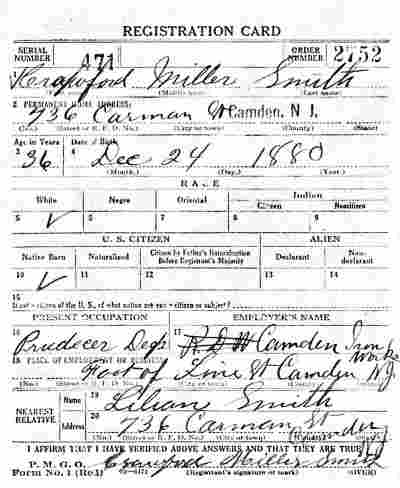 REGISTRATION CARD
SERIAL NUMBER 471 ORDER NUMBER 2752
Crawford Miller Smith
(Middle name) (Last name)
2 PERMANENT HOME ADDRESS:
736 Carman St Camden, N. J.
(No.) (Street or R. F. D. No.) (City or town) (County) (State)
Age in Years Date of Birth
3 36 4 Dec 24 1880
(Month.) (Day.) (Year.)
RACE
White Negro Oriental Indian
Citizen Noncitizen
5 ✓ 6 7 8 9
U. S. CITIZEN ALIEN
Native Born Naturalized Citizen by Father's Naturalization Before Registrant's Majority Declarant Non-declarant
10 ✓ 11 12 13 14
15
If not a citizen of the U. S., of what nation are you a citizen or subject?
PRESENT OCCUPATION EMPLOYER'S NAME
16 17 Camden Iron Works
18 PLACE OF EMPLOYMENT OR BUSINESS:
Foot of Line St Camden NJ
(No.) (Street or R. F. D. No.) (City or town) (County) (State)
NEAREST RELATIVE Name 19 Lilian Smith
Address 20 736 Carman St Camden
(No.) (City or town) (State)
I AFFIRM THAT I HAVE VERIFIED ABOVE ANSWERS AND THAT THEY ARE TRUE
P. M. G. O.
Form No. 1 (Red) Crawford Miller Smith
(Registrant's signature or mark) (OVER)